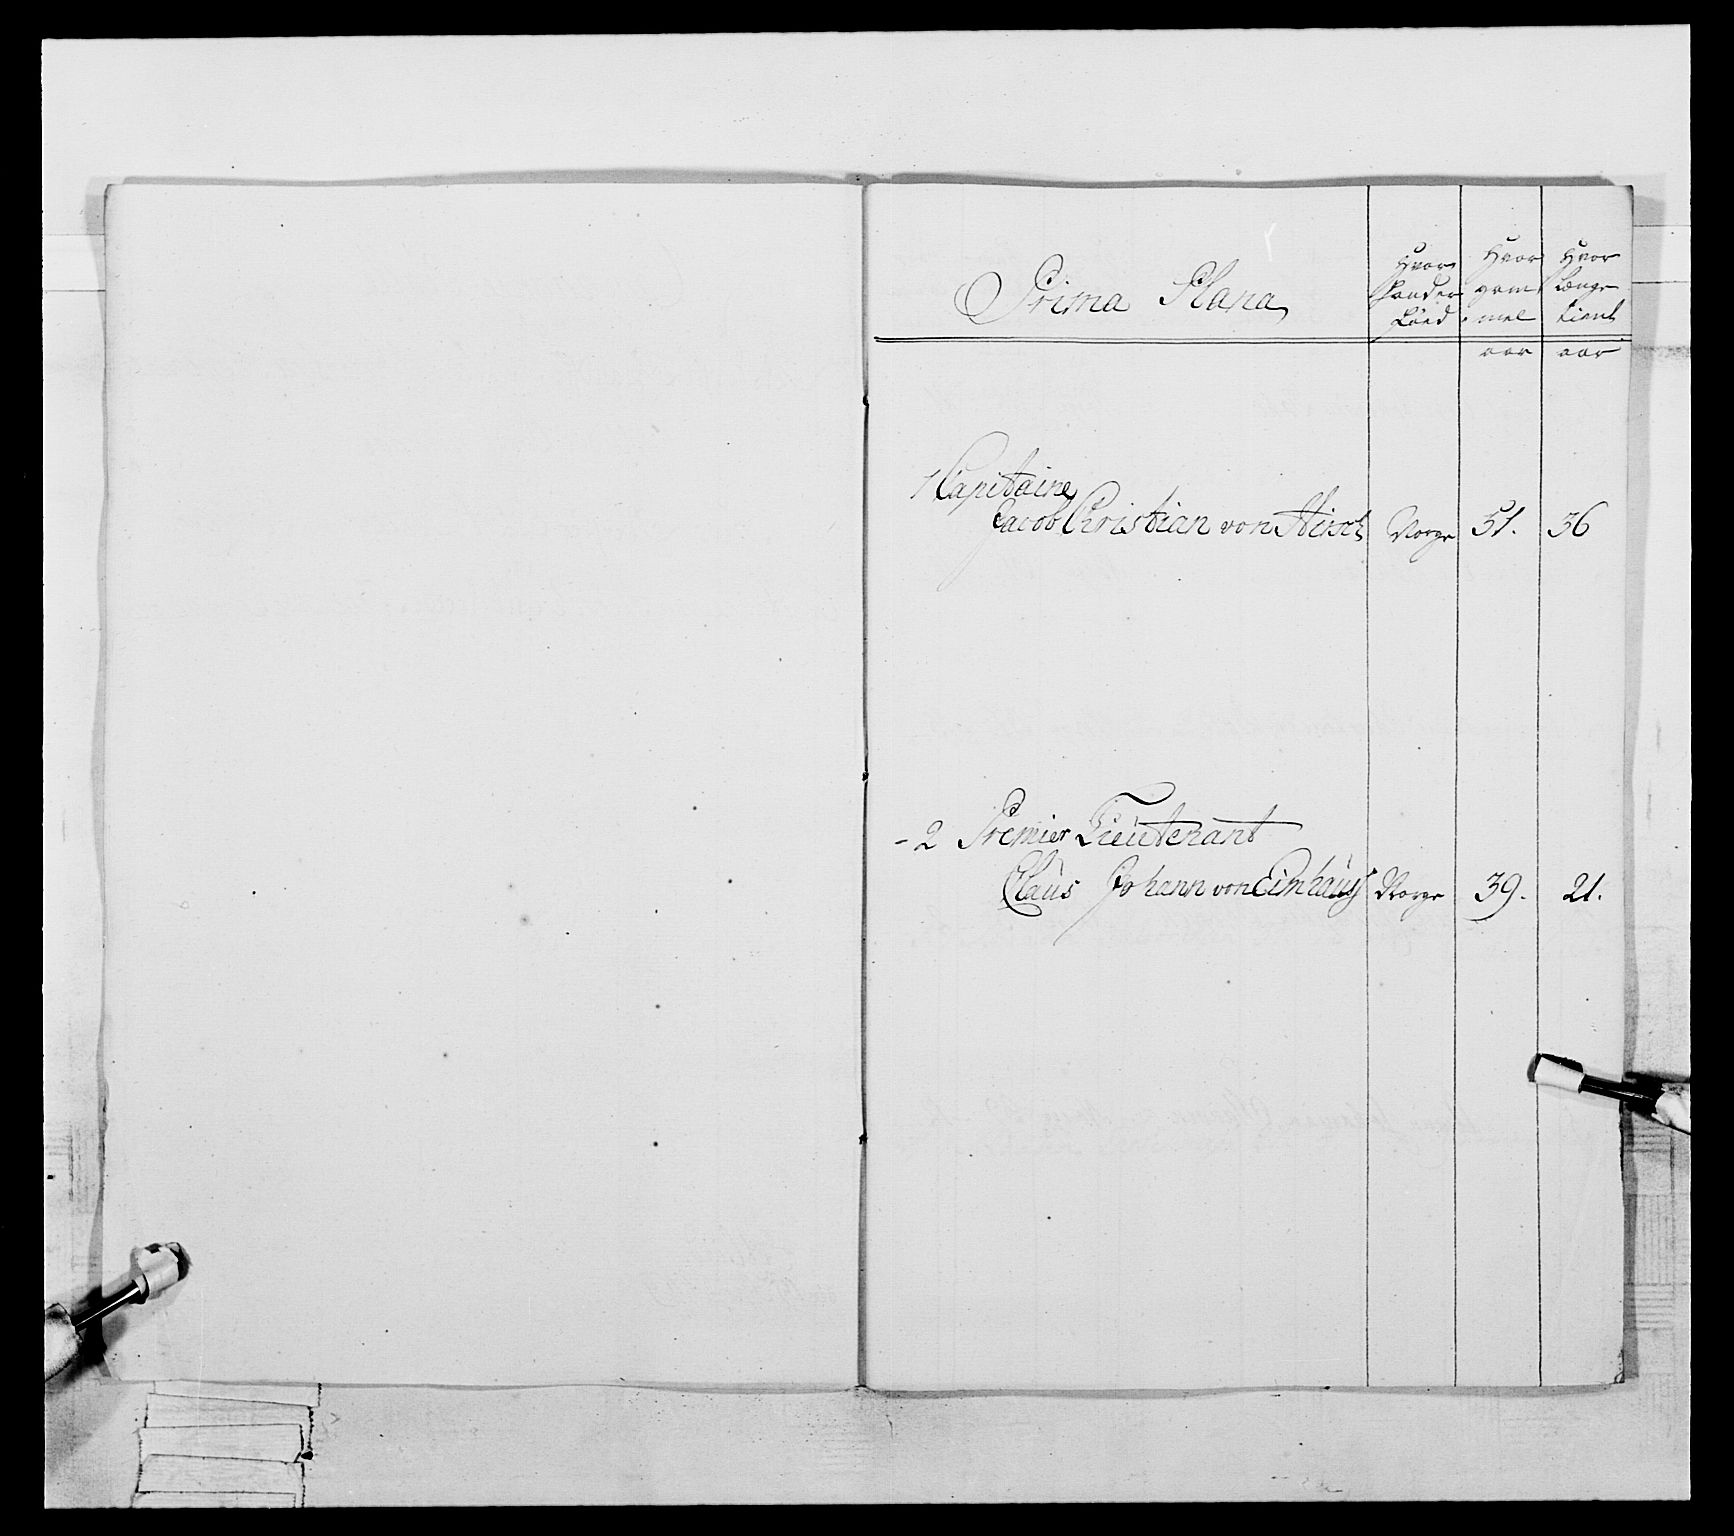 Prima Plana
Hvor Hvor Hvor
gam længe
Föed mel tient
aar aar
1 Capitaine
Jacob Christian von Hirsch Norge 51. 36
- 2 Premier Lieutenant
Claus Johann von Eimhaus Norge 39. 21.